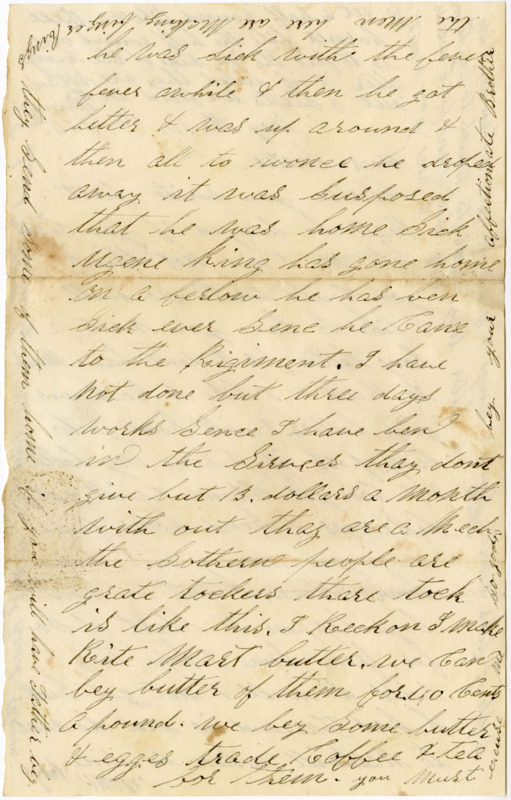 he was Sick with the fever
fever awhile & then he got
better & was up around &
then all to wonce he droped
away it was Susposed
that he was home Sick
ugene King has gone home
on a ferlow he has ben
Sick ever Senc he Came
to the Rigiment. I have
not done but three days
works Sence I have ben
in the Sirvces thay dont
give but 13. dollars a Month
with out thay are a Mech
the Sothern people are
grate tockers thare tock
is like this. I Reckon I make
Rite Mart butter. we Can
bey butter of them for 40 Cents
a pound. we bey Some butter
& egges trade Coffee & tea
for them. you Must
excuse me so good
bey your affectionate Brother
the Men here are Making finger Rings
they Send Some of them home if you will have Father